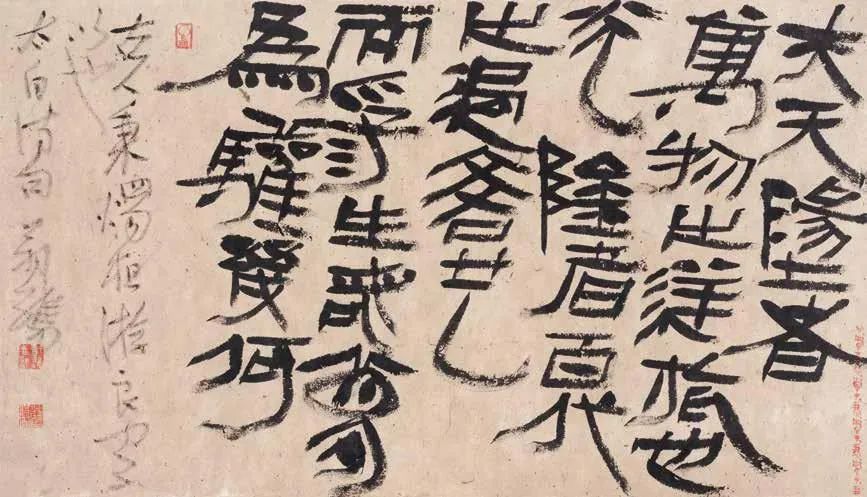 夫天地者
萬物之逆旅也
光陰者百代
之過客也
而浮生若夢
為驩幾何
古人秉燭夜遊良有
以也
太白